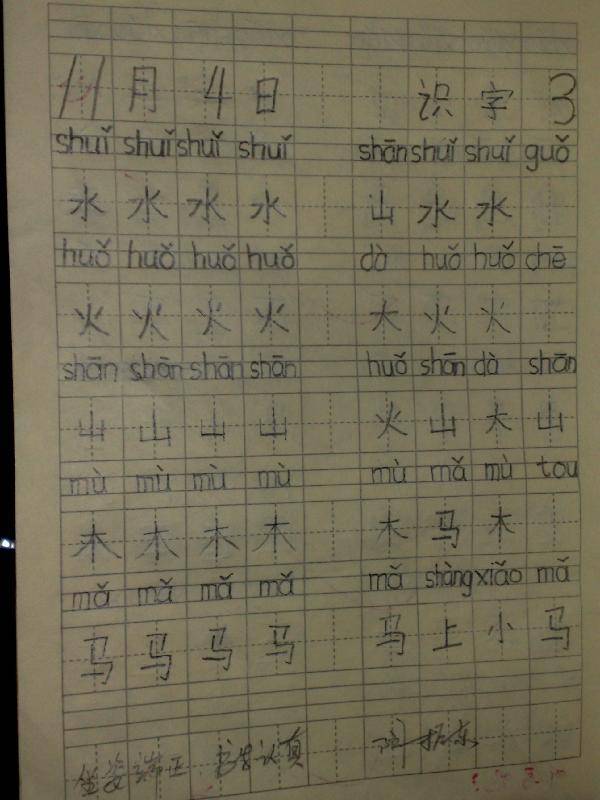 11月4日 识字3
shuǐ shuǐ shuǐ shuǐ shān shuǐ shuǐ guǒ
水 水 水 水 山 水 水
huǒ huǒ huǒ huǒ dà huǒ huǒ chē
火 火 火 火 大 火 火
shān shān shān shān huǒ shān dà shān
山 山 山 山 火 山 大 山
mù mù mù mù mù mǎ mù tou
木 木 木 木 木 马 木
mǎ mǎ mǎ mǎ mǎ shàng xiǎo mǎ
马 马 马 马 马 上 小 马
坐姿端正 书写认真